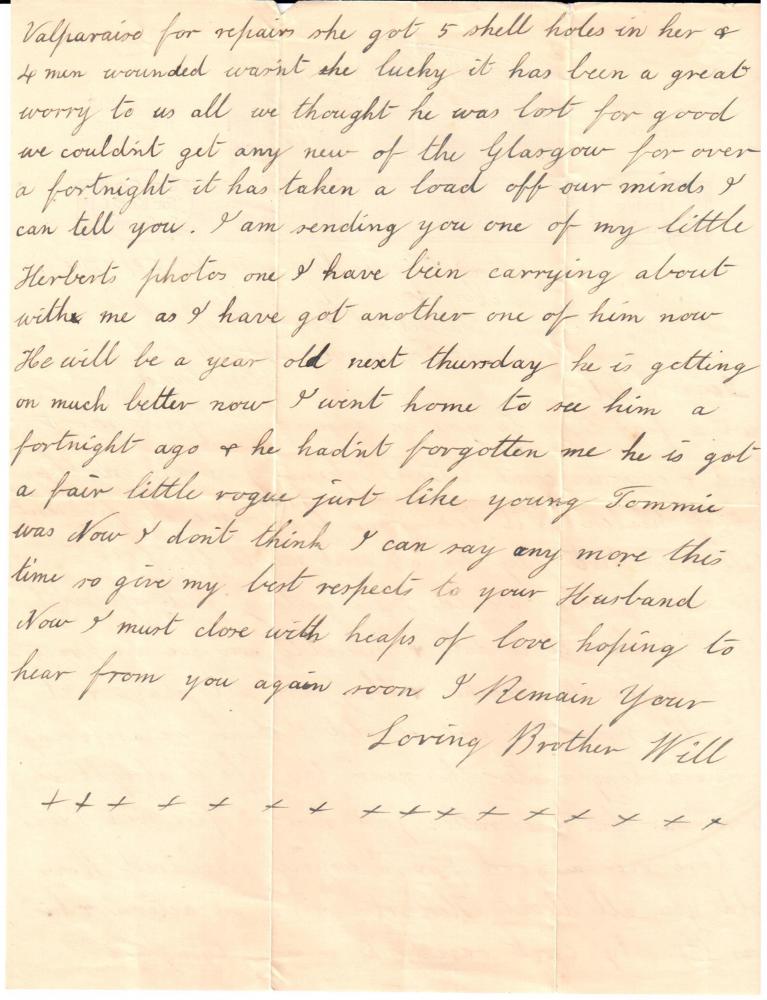 Valparaiso for repairs she got 5 shell holes in her &
4 men wounded wasn't she lucky it has been a great
worry to us all we thought he was lost for good
we couldn't get any new of the Glasgow for over
a fortnight it has taken a load off our minds I
can tell you. I am sending you one of my little
Herberts photos one I have been carrying about
with me as I have got another one of him now
He will be a year old next thursday he is getting
on much better now I went home to see him a
fortnight ago & he hadn't forgotten me he is got
a fair little rogue just like young Tommie
was Now I don't think I can say any more this
time so give my best respects to your Husband
Now I must close with heaps of love hoping to
hear from you again soon I Remain Your
Loving Brother Will
+ + + + + + + + + + + + + + + +